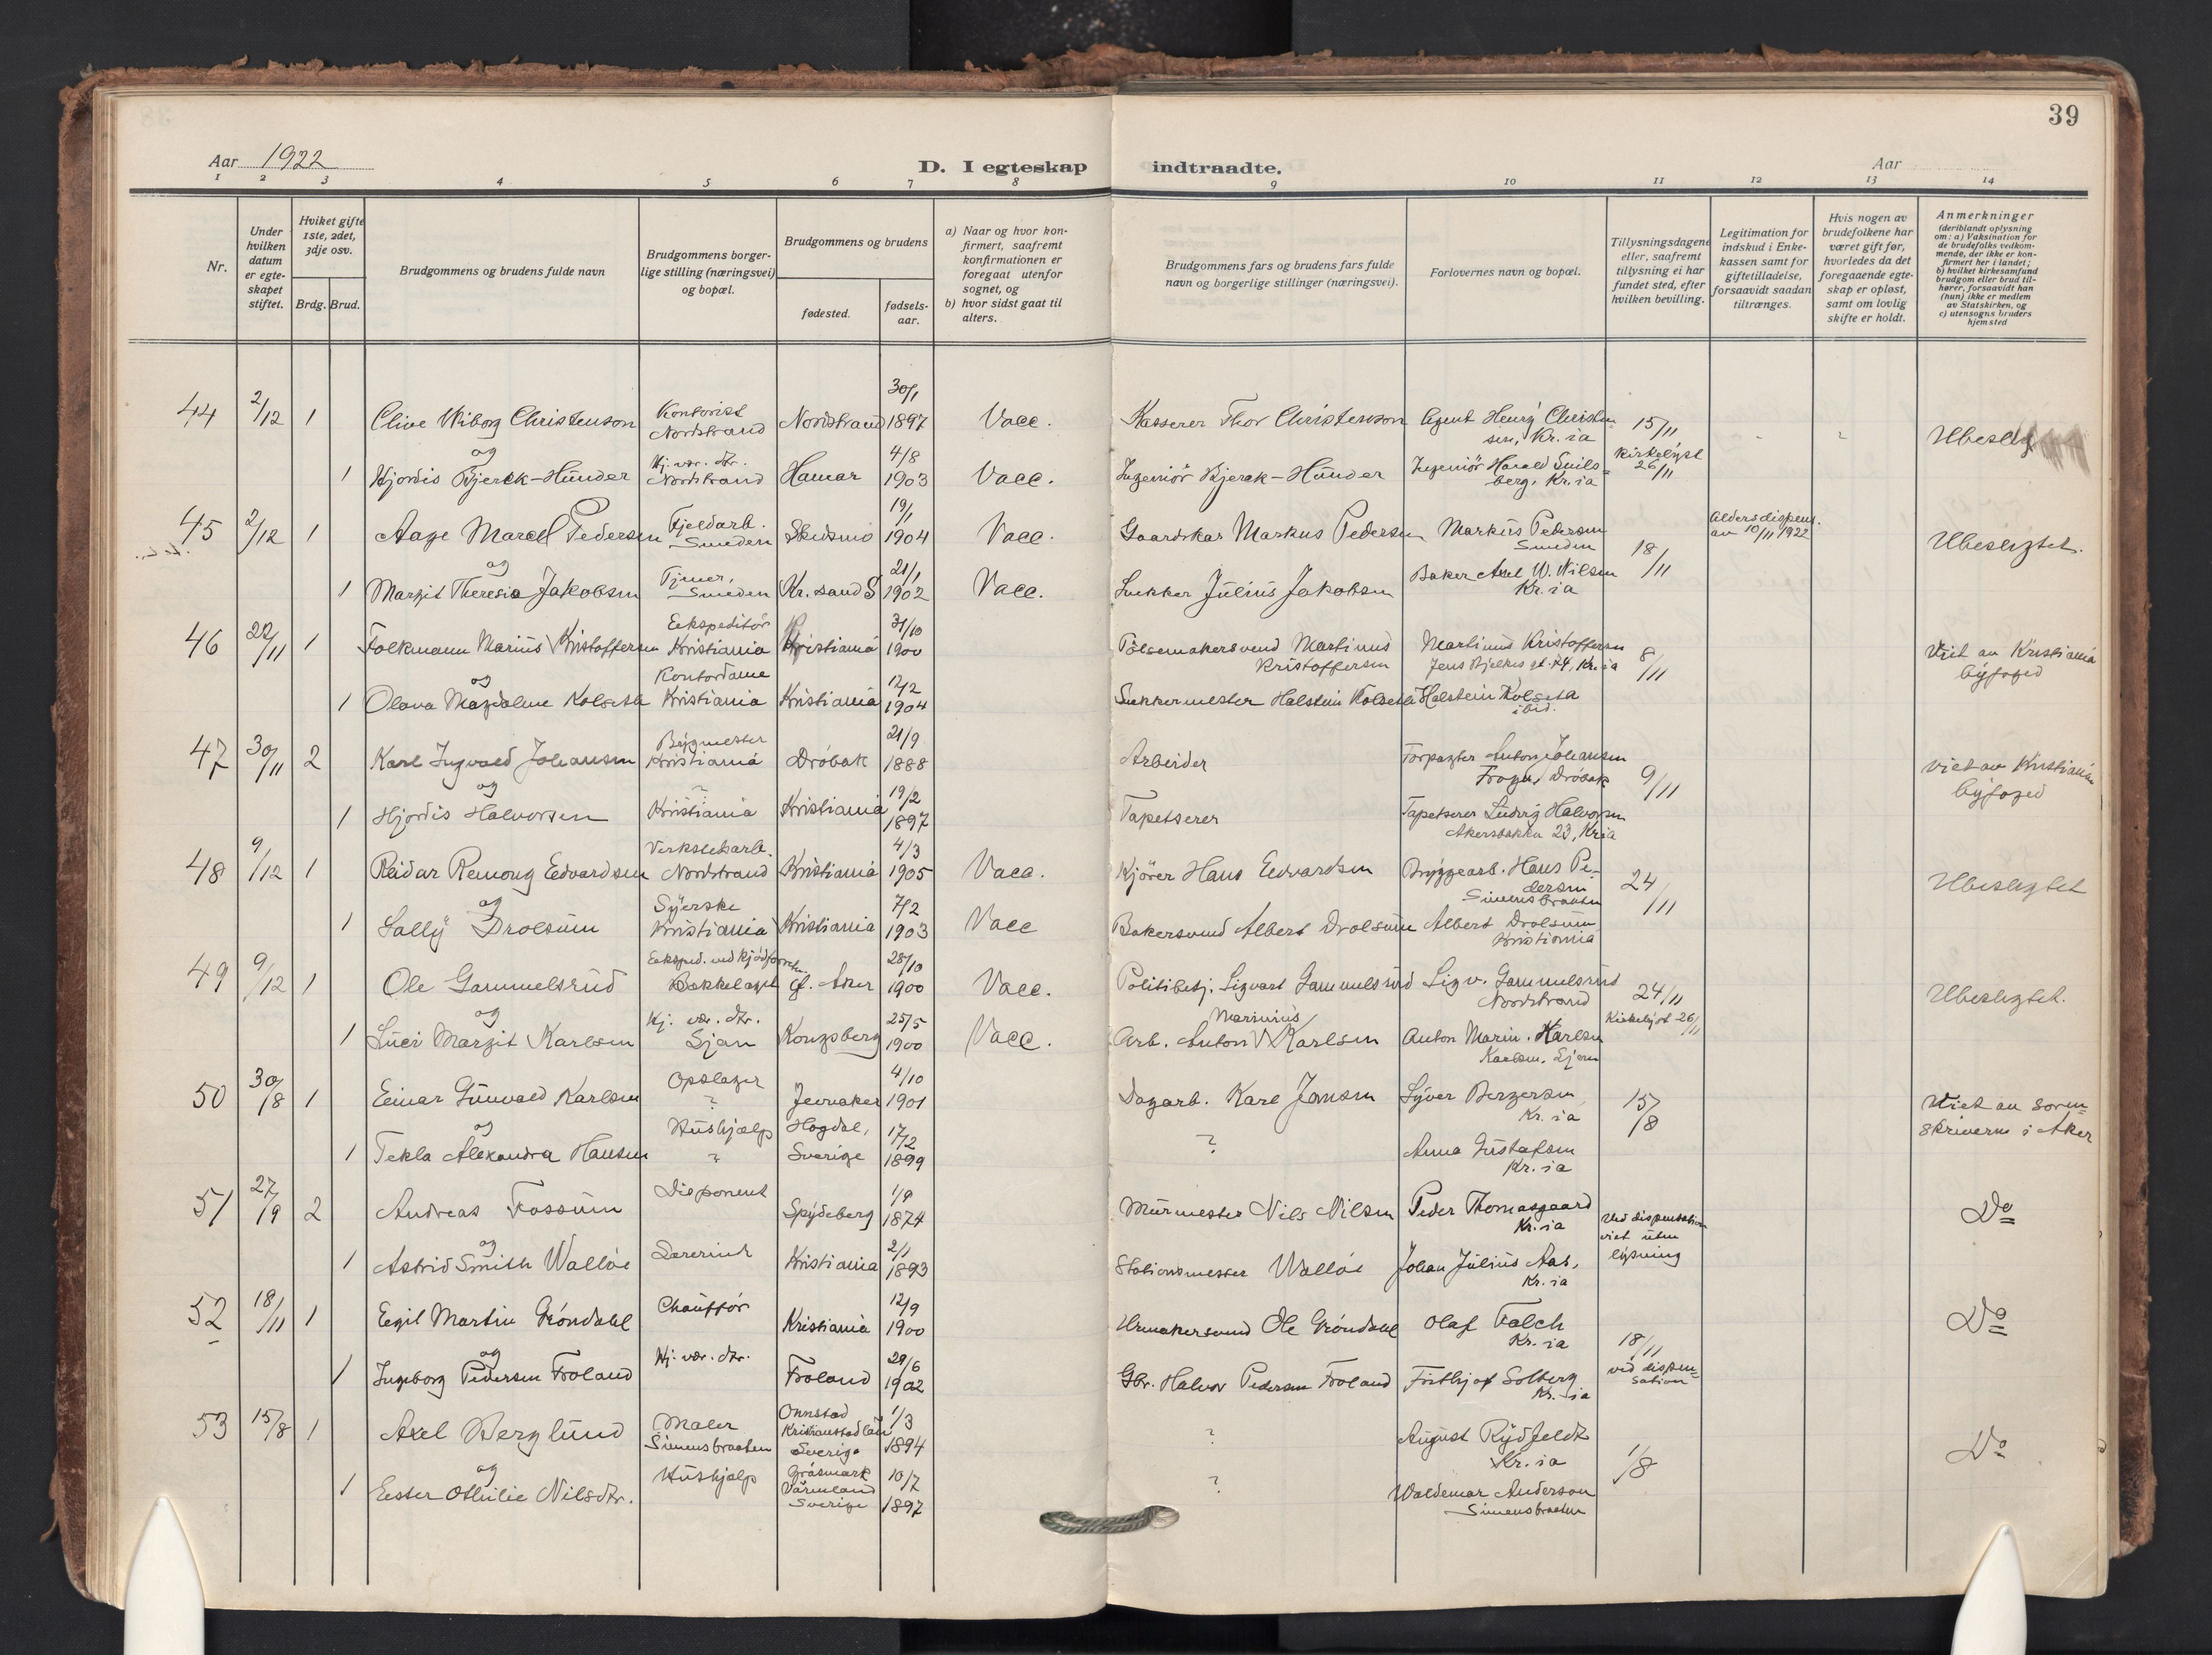 39
Aar 1922
D. I egteskap indtraadte.
Aar
1 2 3 4 5 6 7 8 9 10 11 12 13 14
Nr.
Under hvilken datum er egteskapet stiftet.
Hviket gifte 1ste, 2det, 3dje osv.
Brdg. Brud.
Brudgommens og brudens fulde navn
Brudgommens borgerlige stilling (næringsvei) og bopæl.
Brudgommens og brudens
fødested.
fødselsaar.
a) Naar og hvor konfirmert, saafremt konfirmationen er foregaat utenfor sognet, og
b) hvor sidst gaat til alters.
Brudgommens fars og brudens fars fulde navn og borgerlige stillinger (næringsvei).
Forlovernes navn og bopæl.
Tillysningsdagene eller, saafremt tillysning ei har fundet sted, efter hvilken bevilling.
Legitimation for indskud i Enkekassen samt for giftetilladelse, forsaavidt saadan tiltrænges.
Hvis nogen av brudefolkene har været gift før, hvorledes da det foregaaende egteskap er opløst, samt om lovlig skifte er holdt.
Anmerkninger (deriblandt oplysning om: a) Vaksination for de brudefolks vedkommende, der ikke er konfirmert her i landet; b) hvilket kirkesamfund brudgom eller brud tilhører, forsaavidt han (hun) ikke er medlem av Statskirken, og c) utensogns bruders hjemsted
44 2/12 1 Clive Wiborg Christenson Kontorist Nordstrand Nordstrand 30/1 1897 Vacc. Kasserer Thor Christenson Agent Henry Christensen, Kr.ia 15/11
og
1 Hjordis Bjerck-Hunder Hj. vær. dtr. Nordstrand Hamar 4/8 1903 Vacc. Ingeniør Bjerck-Hunder Ingeniør Harald Smilsberg, Kr.ia Kirkelyst 26/11
45 2/12 1 Aage Marcel Pedersen Fjeldarb. Smeden Skedsmo 19/1 1904 Vacc. Gaardskar Markus Pedersen Markus Pedersen Smeden 18/11 Aldersdispens. av 10/11 1922 Ubeslegtet.
og
1 Margit Theresia Jakobsen Tjener, Smeden Kr.sand S 21/1 1902 Vacc. Snekker Julius Jakobsen Baker Axel W. Nilsen Kr.ia
46 22/11 1 Folkmann Marius Kristoffersen Ekspeditør Kristiania Kristiania 31/10 1900 Pølsemakersvend Martinus Kristoffersen Martinus Kristoffersen Jens Bjelkes gt. 74, Kr.ia 8/11 Viet av Kristiania byfoged
og
1 Olava Magdalene Kolseth Kontordame Kristiania Kristiania 12/2 1904 Snekkermester Halstein Kolseth Halstein Kolseth ibid.
47 30/11 2 Karl Ingvald Johansen Bygmester Kristiania Drøbak 21/9 1888 Arbeider Forpagter Anton Johansen Frogn, Drøbak 9/11 viet av Kristiania byfoged
og
1 Hjordis Halvorsen ? Kristiania Kristiania 19/2 1897 Tapetserer Tapetserer Ludvig Halvorsen Akersbakken 23, Kria
48 9/12 1 Reidar Remong Edvardsen Verkstedarb. Nordstrand Kristiania 4/3 1905 Vacc. Kjører Hans Edvardsen Bryggearb. Hans Pedersen Simensbraaten 24/11 Ubeslegtet
og
1 Sally Drolsum Syerske Kristiania Kristiania 7/2 1903 Vacc Bakersvend Albert Drolsum Albert Drolsum Kristiania
49 9/12 1 Ole Gammelsrud Eksped. ved kjødforretn. Bækkelaget Ø. Aker 28/10 1900 Vacc. Politibetj. Sigvart Gammelsrud Sigv. Gammelsrud Nordstrand 24/11 Ubeslegtet.
og
1 Luci Margit Karlsen Hj. vær. dtr. Ljan Kongsberg 25/5 1900 Vacc. Arb. Anton Marinius Karlsen Anton Marin. Karlsen Karlsen, Ljan Kirkelyst 26/11
50 30/8 1 Einar Gunvald Karlsen Opslager ? Jevnaker 4/10 1901 Dagarb. Karl Jansen Syver Bergersen, Kr.ia 15/8 Viet av sorenskriveren i Aker
og
1 Tekla Alexandra Hansen Hushjælp ? Hogdal, Sverige 17/2 1899 ? Anna Gustafsen Kr.ia
51 27/9 2 Andreas Fossum Disponent Spydeberg 1/9 1874 Murmester Nils Nilsen Peder Thomasgaard Kr.ia Ved dispensation viet uten lysning Do
og
1 Astrid Smith Walløe Lærerinde Kristiania 2/1 1893 Stationsmester Walløe Johan Julius Aas, Kr.ia
52 18/11 1 Egil Martin Grøndahl Chauffør Kristiania 12/9 1900 Urmakersvend Ole Grøndahl Olaf Falch Kr.ia 18/11 ved dispensation Do
og
1 Ingeborg Pedersen Froland Hj. vær. dtr. Froland 29/6 1902 Gbr. Halvor Pedersen Froland Frithjof Solberg Kr.ia
53 15/8 1 Axel Berglund Maler Simensbraaten Onnstad Kristianstad län Sverige 1/3 1894 ? August Rydfeldt Kr.ia 1/8 Do
og
1 Ester Othilie Nilsdtr. Hushjælp Gräsmark Värmland Sverige 10/7 1897 ? Waldemar Anderson Simensbraaten